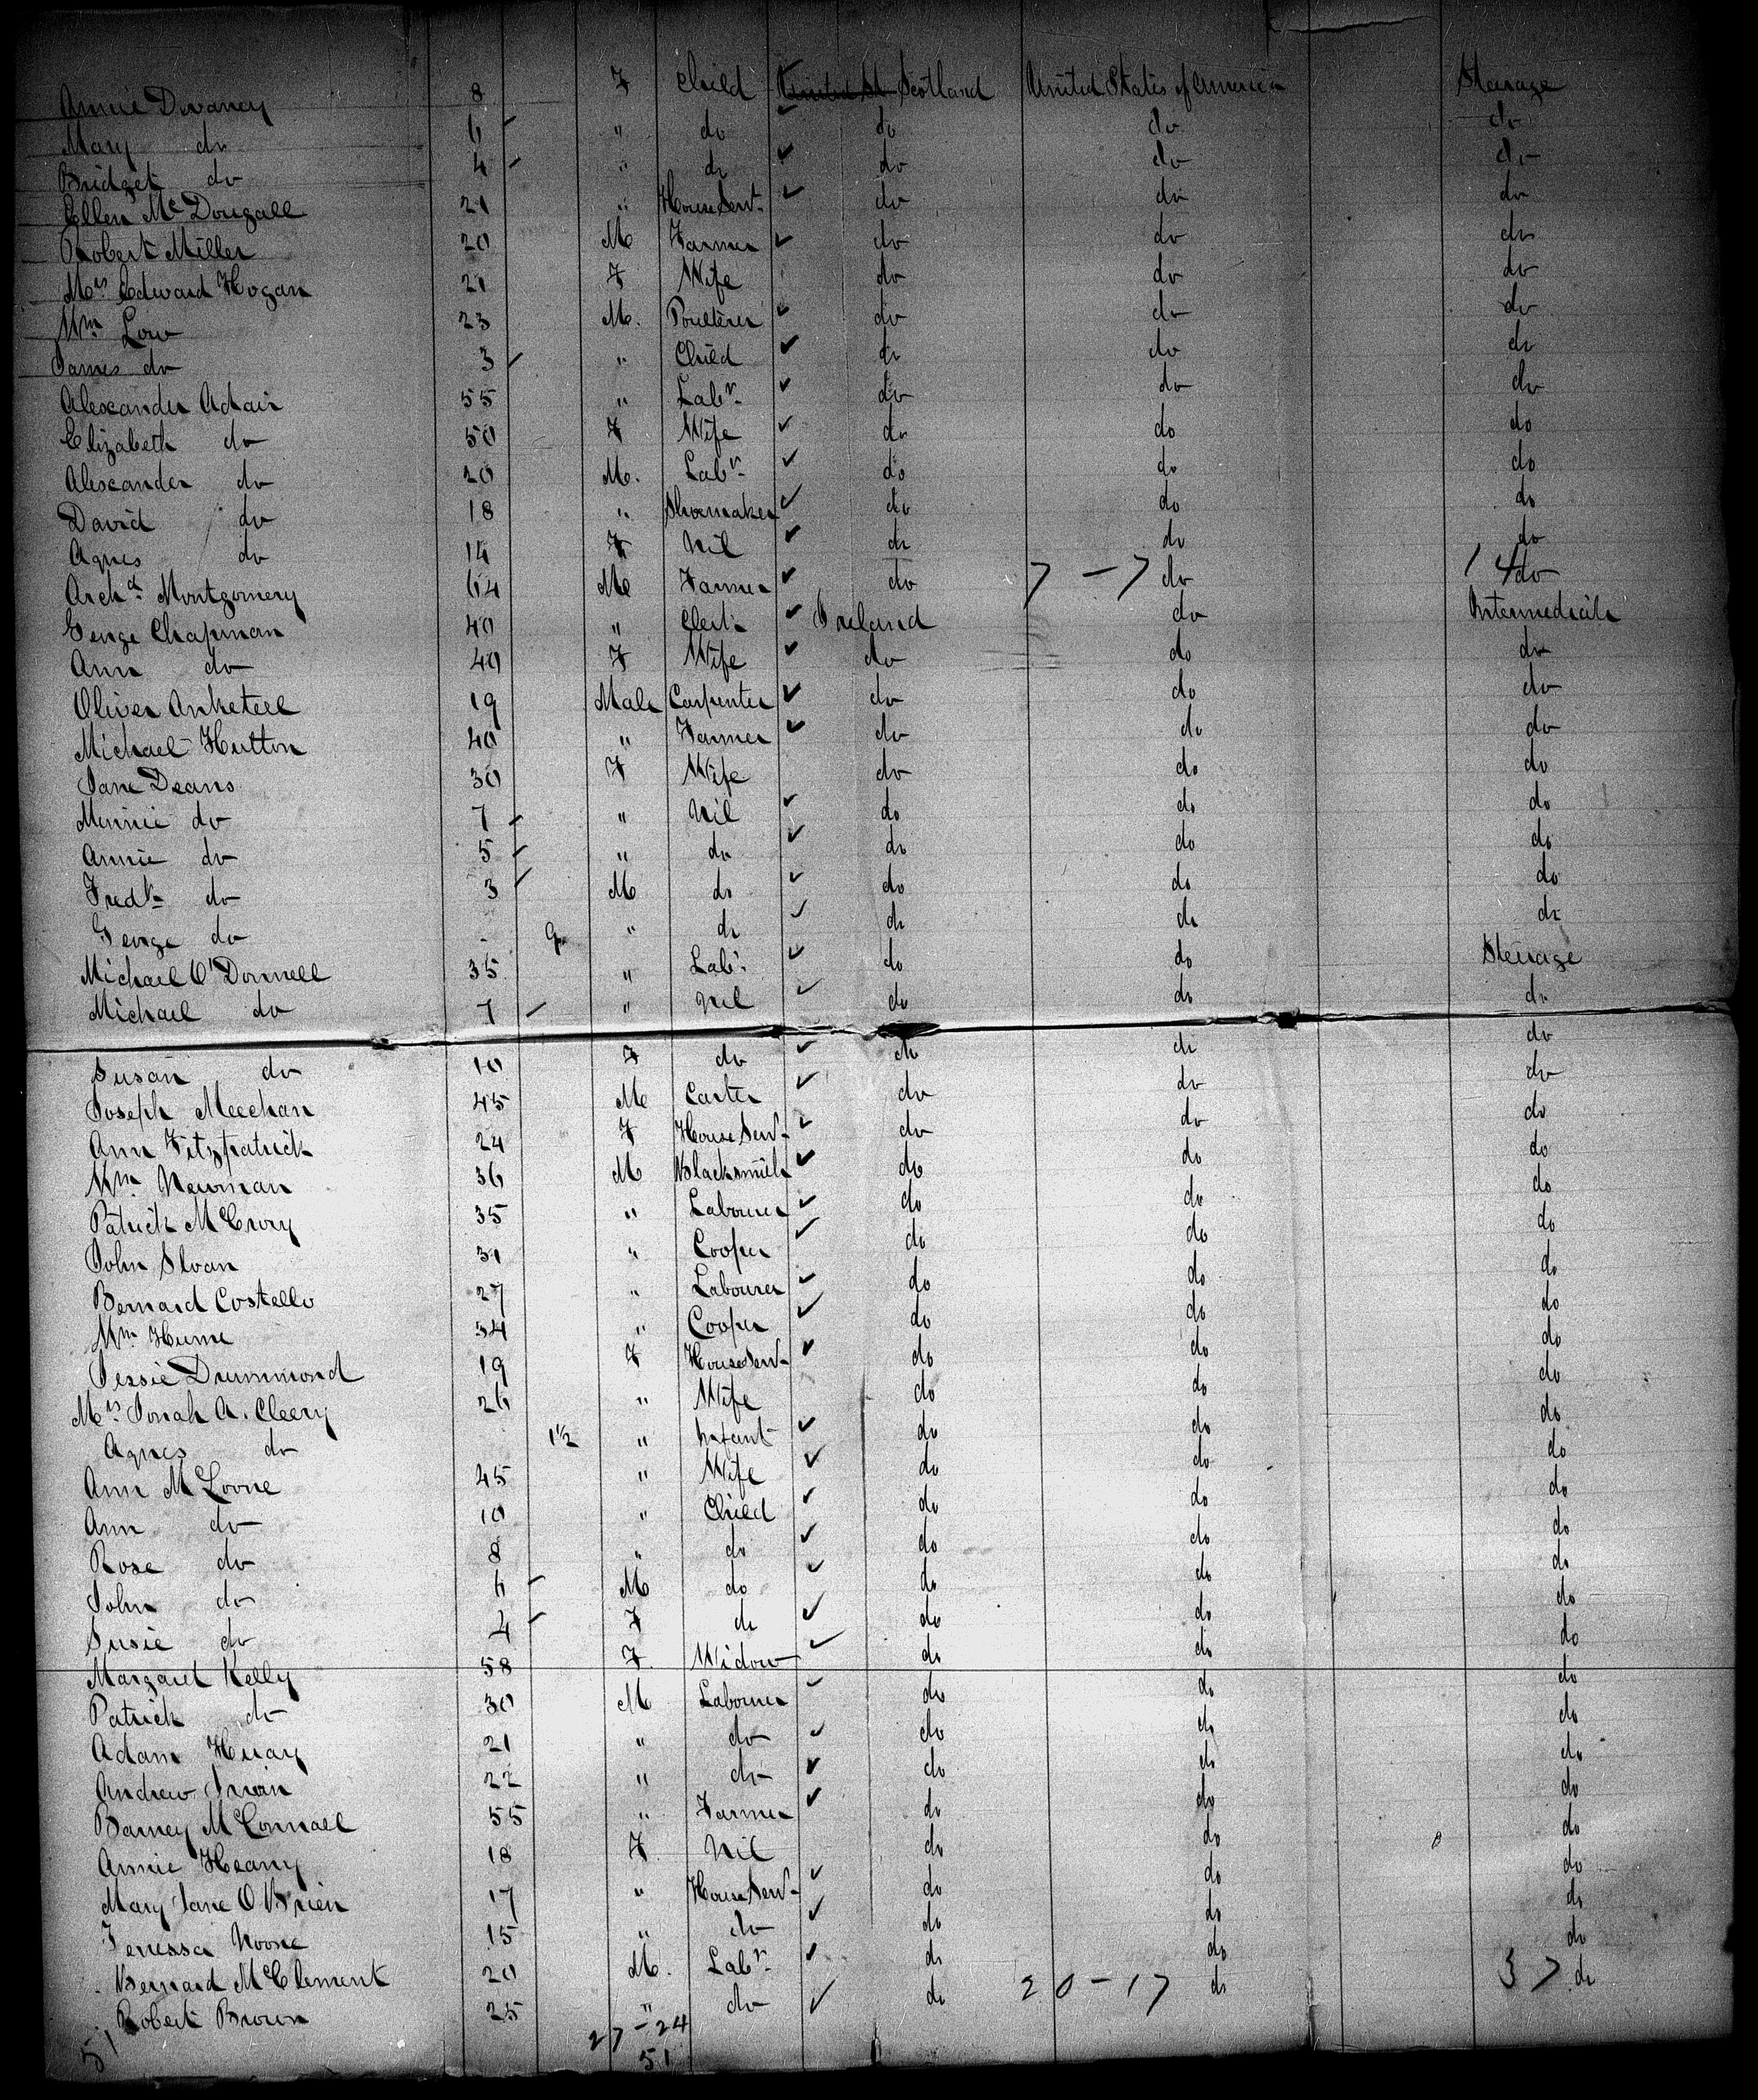 Annie Devaney 8 F Child United St Scotland United States of America Steerage
Mary do 6 " do do do do
Bridget do 4 " do do do do
Ellen McDougall 21 " House Servt. do do do
Robert Miller 20 M Farmer do do do
Mrs Edward Hogan 21 F Wife do do do
Wm Low 23 M. Poulterer do do do
James do 3 " Child do do do
Alexander Adair 55 " Labr. do do do
Elizabeth do 50 F Wife do do do
Alexander do 20 M. Labr. do do do
David do 18 " Shoemaker do do do
Agnes do 14 F Nil do do do
Archd. Montgomery 64 M Farmer do 7 - 7 do 14 do
George Chapman 40 " Clerk Ireland do Intermediate
Ann do 40 F Wife do do do
Oliver Anketell 19 Male Carpenter do do do
Michael Hutton 40 " Farmer do do do
Jane Deans 30 F Wife do do do
Minnie do 7 " Nil do do do
Annie do 5 " do do do do
Fredk do 3 M do do do do
George do 9 " do do do do
Michael O'Donnell 35 " Labr. do do Steerage
Michael do 7 " Nil do do do
Susan do 10 F do do do do
Joseph Meechan 45 M Carter do do do
Ann Fitzpatrick 24 F House Servt. do do do
Wm Newman 36 M Blacksmith do do do
Patrick McCrory 35 " Labourer do do do
John Sloan 31 " Cooper do do do
Bernard Costello 27 " Labourer do do do
Wm Hume 34 " Cooper do do do
Jessie Drummond 19 F House Servt. do do do
Mrs. Jonah A. Cleery 26 " Wife do do do
Agnes do 1½ " Infant do do do
Ann McLoone 45 " Wife do do do
Ann do 10 " Child do do do
Rose do 8 " do do do do
John do 6 M do do do do
Susie do 4 F do do do do
Margaret Kelly 58 F. Widow do do do
Patrick do 30 M Labourer do do do
Adam 21 " do do do do
Andrew Irwin 22 " do do do do
Barney McConnell 55 " Farmer do do do
Annie Heany 18 F. Nil do do do
Mary Jane O'Brien 17 " House Servt. do do do
Noone 15 " do do do do
Bernard McClement 20 M. Labr. do do do
Robert Brown 25 " do do 20 - 17 do 37 do
51 27 - 24
51